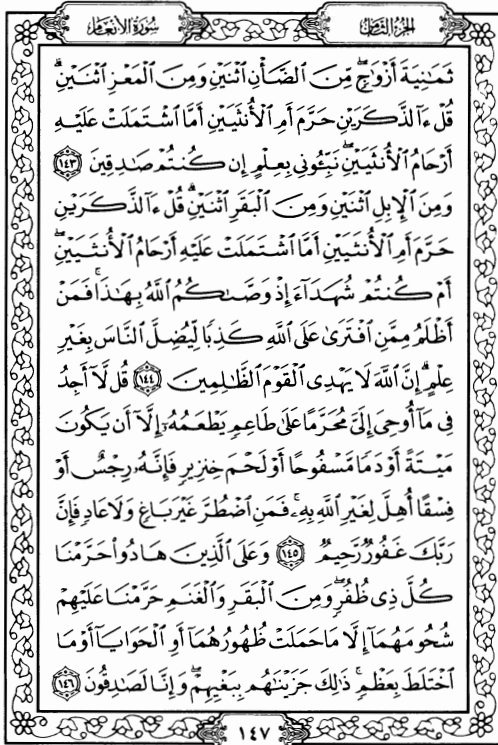 الجزء الثامن
سورة الأنعام
ثَمَـٰنِيَةَ أَزْوَٰجٍ ۖ مِّنَ ٱلضَّأْنِ ٱثْنَيْنِ وَمِنَ ٱلْمَعْزِ ٱثْنَيْنِ ۗ
قُلْ ءَآلذَّكَرَيْنِ حَرَّمَ أَمِ ٱلْأُنثَيَيْنِ أَمَّا ٱشْتَمَلَتْ عَلَيْهِ
أَرْحَامُ ٱلْأُنثَيَيْنِ ۖ نَبِّـُٔونِى بِعِلْمٍ إِن كُنتُمْ صَـٰدِقِينَ ١٤٣
وَمِنَ ٱلْإِبِلِ ٱثْنَيْنِ وَمِنَ ٱلْبَقَرِ ٱثْنَيْنِ ۗ قُلْ ءَآلذَّكَرَيْنِ
حَرَّمَ أَمِ ٱلْأُنثَيَيْنِ أَمَّا ٱشْتَمَلَتْ عَلَيْهِ أَرْحَامُ ٱلْأُنثَيَيْنِ ۖ
أَمْ كُنتُمْ شُهَدَآءَ إِذْ وَصَّىٰكُمُ ٱللَّهُ بِهَـٰذَا ۚ فَمَنْ
أَظْلَمُ مِمَّنِ ٱفْتَرَىٰ عَلَى ٱللَّهِ كَذِبًا لِّيُضِلَّ ٱلنَّاسَ بِغَيْرِ
عِلْمٍ ۗ إِنَّ ٱللَّهَ لَا يَهْدِى ٱلْقَوْمَ ٱلظَّـٰلِمِينَ ١٤٤ قُل لَّآ أَجِدُ
فِى مَآ أُوحِىَ إِلَىَّ مُحَرَّمًا عَلَىٰ طَاعِمٍ يَطْعَمُهُۥٓ إِلَّآ أَن يَكُونَ
مَيْتَةً أَوْ دَمًا مَّسْفُوحًا أَوْ لَحْمَ خِنزِيرٍ فَإِنَّهُۥ رِجْسٌ أَوْ
فِسْقًا أُهِلَّ لِغَيْرِ ٱللَّهِ بِهِۦ ۚ فَمَنِ ٱضْطُرَّ غَيْرَ بَاغٍ وَلَا عَادٍ فَإِنَّ
رَبَّكَ غَفُورٌ رَّحِيمٌ ١٤٥ وَعَلَى ٱلَّذِينَ هَادُوا۟ حَرَّمْنَا
كُلَّ ذِى ظُفُرٍ ۖ وَمِنَ ٱلْبَقَرِ وَٱلْغَنَمِ حَرَّمْنَا عَلَيْهِمْ
شُحُومَهُمَآ إِلَّا مَا حَمَلَتْ ظُهُورُهُمَآ أَوِ ٱلْحَوَايَآ أَوْ مَا
ٱخْتَلَطَ بِعَظْمٍ ۚ ذَٰلِكَ جَزَيْنَـٰهُم بِبَغْيِهِمْ ۖ وَإِنَّا لَصَـٰدِقُونَ ١٤٦
١٤٧